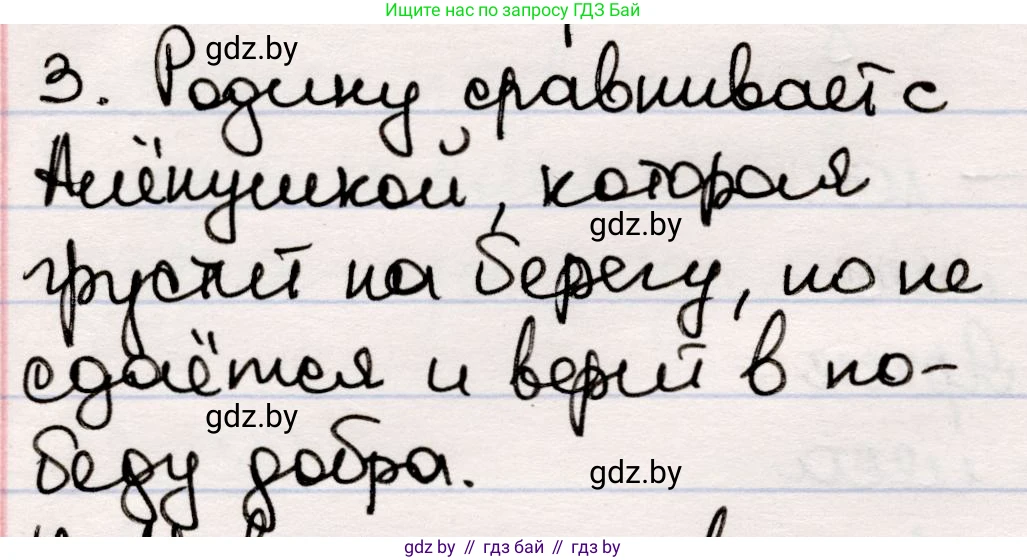 Ищите нас по запросу ГДЗ Бай
gdz.by
3. Родину сравнивает с
Алёнушкой, которая
gdz.by
грустит на берегу, но не
сдаётся и верит в по-
gdz.by
беду добра.
gdz.by
gdz.by // гдз бай // гдз.by